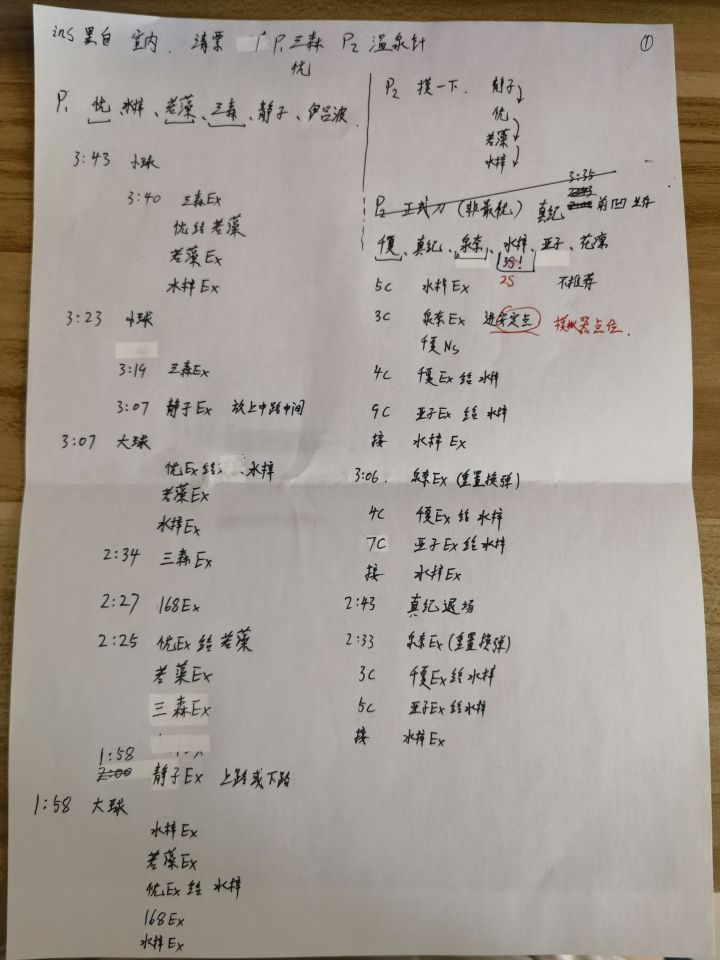 ins 黑白 室内. 清票 P₁ 三森 P₂ 温泉针
优
①
P₁ 优、水梓、若藻、三森、静子、伊吕波
3:43 小球
3:40 三森Ex
优给若藻
若藻Ex
水梓Ex
3:23 小球
3:19 三森Ex
3:07 静子Ex 放上中路中间
3:07 大球
优Ex给 水梓
若藻Ex
水梓Ex
2:34 三森Ex
2:27 168Ex
2:25 优Ex给若藻
若藻Ex
三森Ex
1:58
2:00 静子Ex 上路或下路
1:58 大球
水梓Ex
若藻Ex
优Ex给 水梓
168Ex
水梓Ex
P₂ 摸一下. 静子
优
若藻
水梓
3:35
P₂ 正式刀 (非最优) 真纪 前凹
千夏、真纪、泉奈、水梓、亚子、花凛
3S!
5C 水梓Ex 2S 不推荐
3C 泉奈Ex 定点 模拟器点位.
千夏Ns
4C 千夏Ex给水梓
9C 亚子Ex给水梓
接 水梓Ex
3:06. 泉奈Ex (重置换弹)
4C 千夏Ex给水梓
7C 亚子Ex给水梓
接 水梓Ex
2:43 真纪退场
2:33 泉奈Ex (重置换弹)
3C 千夏Ex给水梓
5C 亚子Ex给水梓
接 水梓Ex